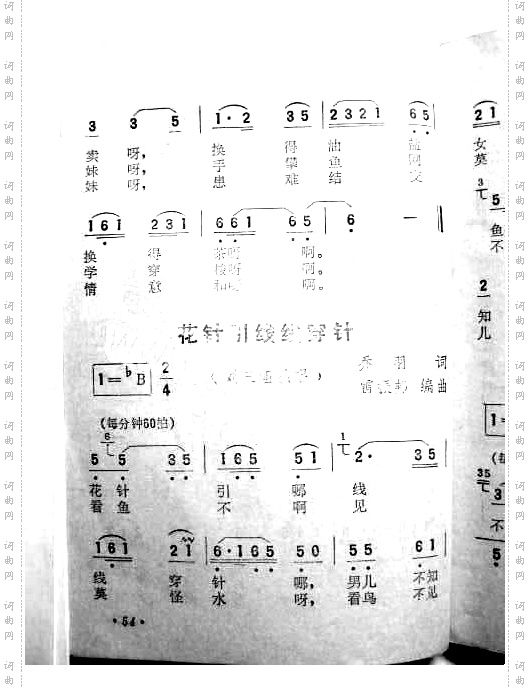 3 3 5 | 1·2 3 5 | 2 3 2 1 6 5 |
卖 呀， 换 得 油
妹 呀， 手 拿 鱼 网
妹 呀， 患 难 结 交
1 6 1 2 3 1 | 6 6 1 6 5 | 6 — ‖
换 得 茶呀 啊。
学 穿 梭呀 啊。
情 意 和呀 啊。
花针引线线穿针
1=♭B 2/4
乔 羽 词
雷振邦 编曲
(每分钟60拍)
5 5 3 5 | 1 6 5 5 1 | 2· 3 5 |
花 针 引 哪 线
看 鱼 不 啊 见
1 6 1 2 1 | 6·1 6 5 5 0 | 5 5 6 1 |
线 穿 针 哪， 男儿 不知
莫 怪 水 呀， 看鸟 不见
·54·
2 1
女
莫
5
鱼
不
2
知
儿
1=
3
不
5
词曲网